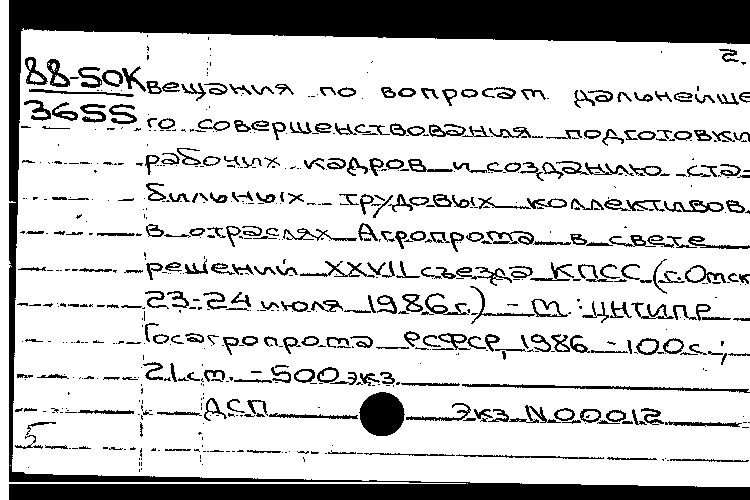 2.
88-50К вещания по вопросам дальнейше
3655 го совершенствования подготовки
рабочих кадров и созданию ста-
бильных трудовых коллективов
в отраслях Агропрома в свете
решений XXVII съезда КПСС (г. Омск
23-24 июля 1986 г.) - М : ЦНТИПР
Госагропрома РСФСР, 1986 - 100 с. ;
21 см. - 500 экз
ДСП Экз N 00012
5